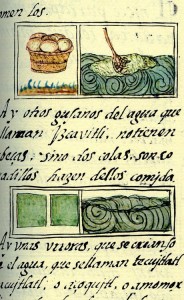 omen los.
Ay otros gusanos del agua que
llaman Yzcavitli: no tienen
beças, sino dos colas, son co
adillos hazen dellos comida
Ay vnas vrronas, que se crian so
el agua, que se llaman tecuitlatl
o azoquitl, o amomox